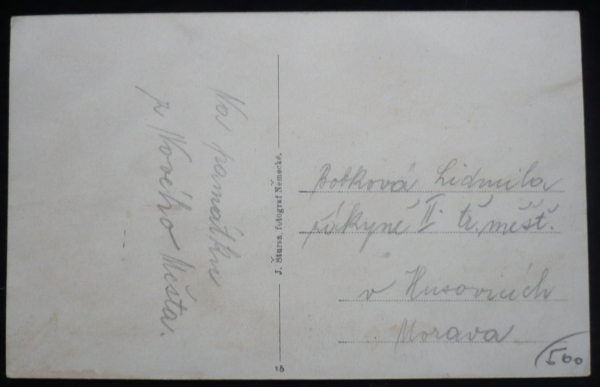 Na památku
z Nového Města.
J. Šturna, fotograf Německé.
Botková Lidmila
žákyně II. tř. měšť.
v Husovicích
Morava
16
500